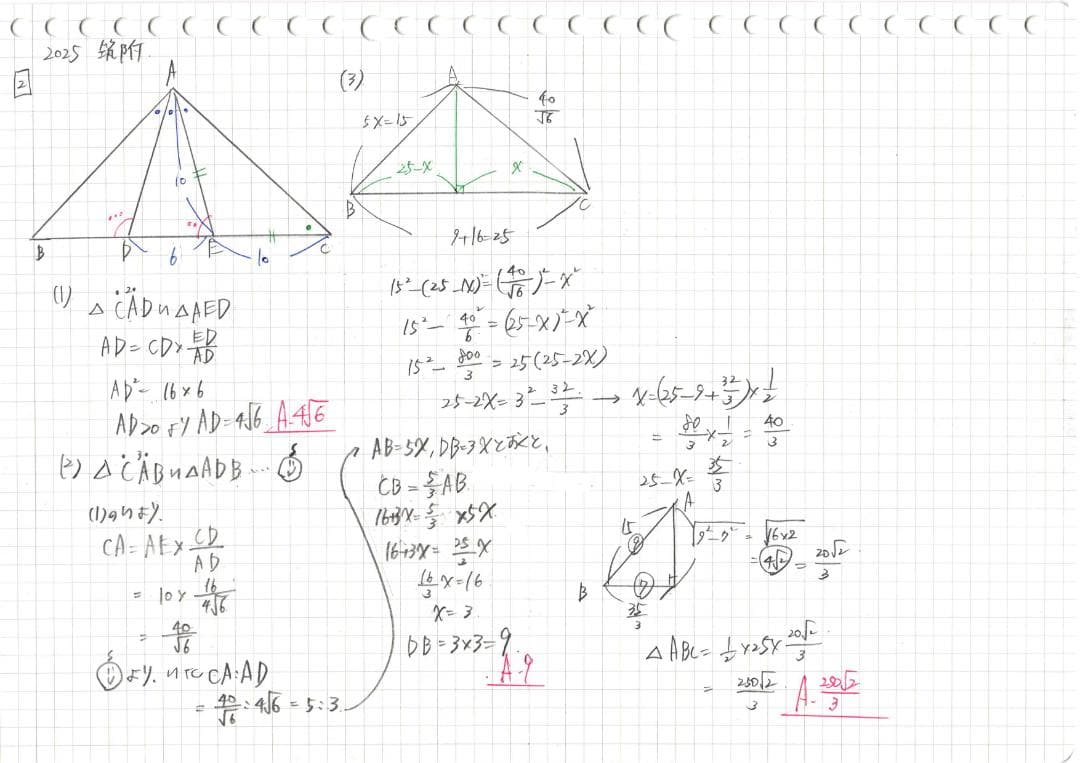 2025 筑附
2
A
10
B
D
E
C
6
10
(1)
△CAD∽△AED
AD=CD×ED/AD
AD²=16×6
AD>0より AD=4√6 A.4√6
(2) △CAB∽△ADB…
(1)のより.
CA=AE×CD/AD
=10×16/4√6
=40/√6
より. ∽で CA:AD
=40/√6:4√6=5:3
AB=5X, DB=3Xとおくと,
CB=5/3AB
16+3X=5/3×5X
16+3X=25/3X
16/3X=16
X=3
DB=3×3=9
A.9
(3)
A
5X=15
40/√6
25-X
X
B
C
9+16=25
15²-(25-X)²=(40/√6)²-X²
15²-40²/6=(25-X)²-X²
15²-800/3=25(25-2X)
25-2X=3²-32/3 → X=(25-9+32/3)×1/2
=80/3×1/2=40/3
25-X=35/3
A
15
⑨
√9²-7²=√16×2
=4√2=20√2/3
B
⑦
35/3
△ABC=1/2×25×20√2/3
=250√2/3 A.250√2/3